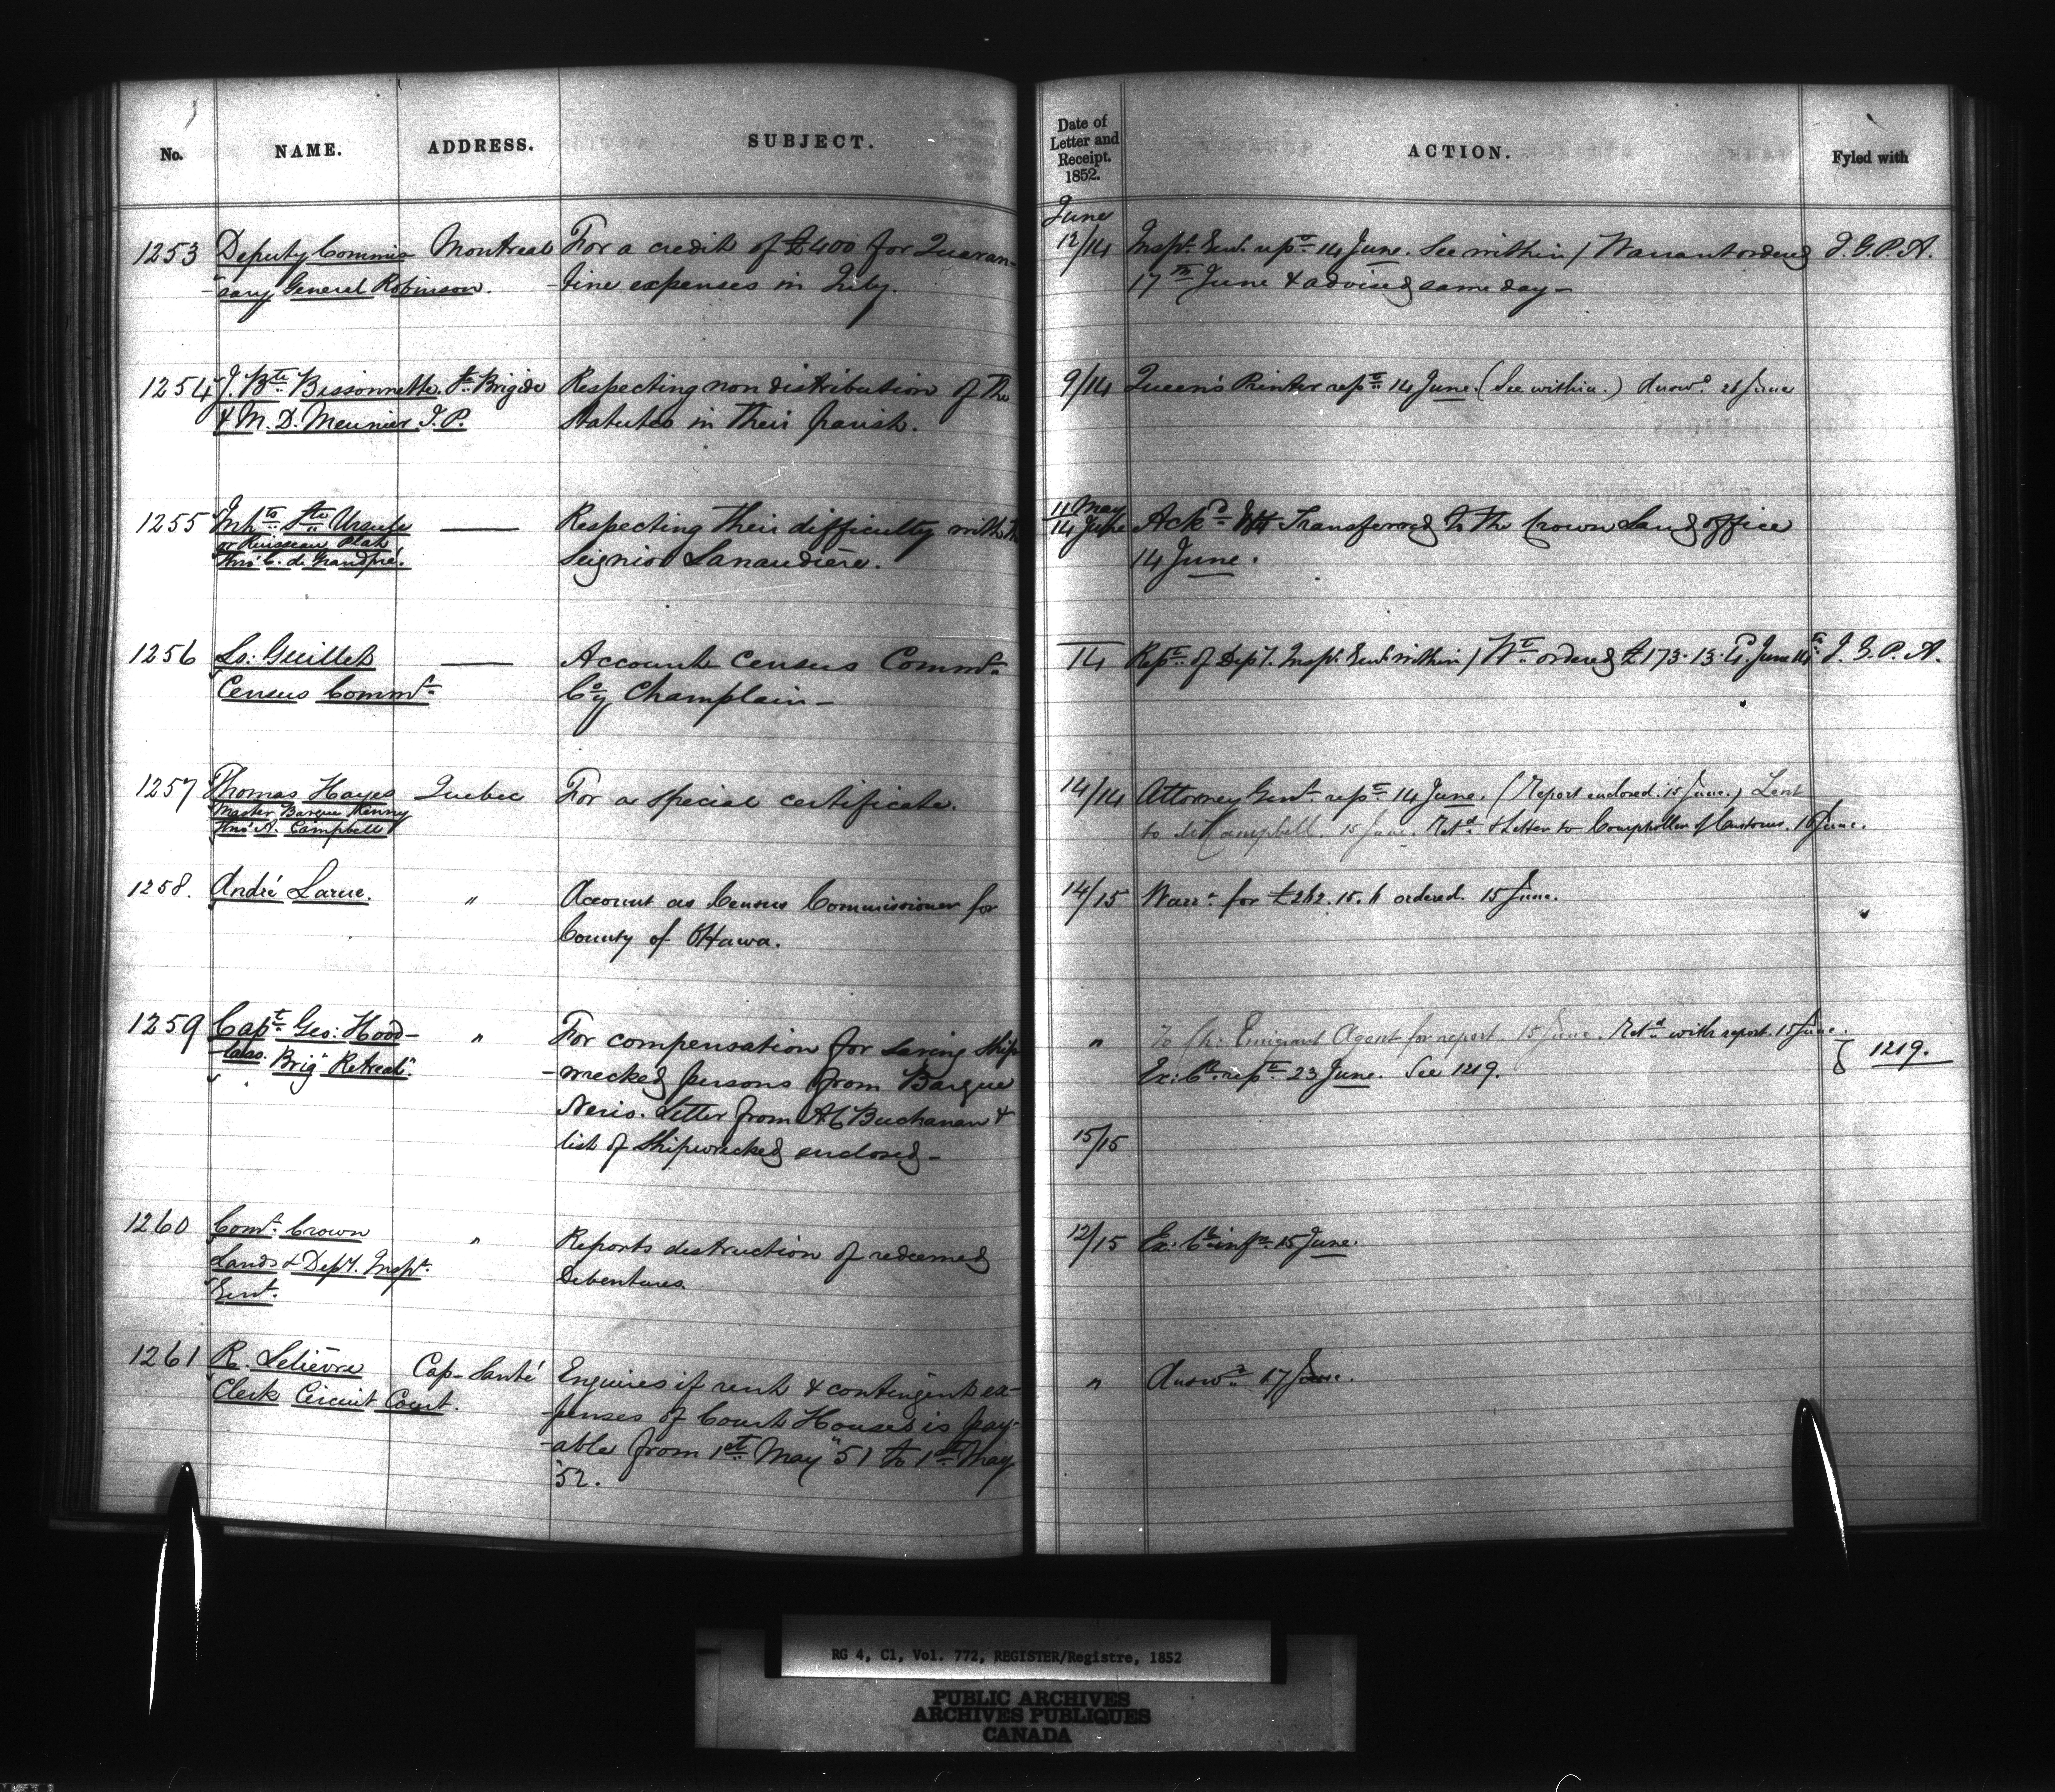 No.
NAME.
ADDRESS.
SUBJECT.
1253 Deputy Commis Montreal For a credit of £400 for Quaran-
-sary General Robinson. -tine expenses in July.
1254 J. Bte Bissonnette. Ste Brigide Respecting non distribution of the
& M. D. Meunier J. P. Statutes in their parish.
1255 Inhts Ste Ursule —— Respecting their difficulty with the
or Ruisseau Plat Seignior Lanaudière.
Thro' C. de Grandpré.
1256 Ls: Guillet —— Account Census Commr
Census Commr Coy Champlain—
1257 Thomas Hayes Quebec For a special certificate.
Master Barque Kenny
Thro' A. Campbell
1258. André Larue. " Account as Census Commissioner for
County of Ottawa.
1259 Capt Geo: Hood- " For compensation for saving Ship
-less. Brig "Retreat". -wrecked persons from Barque
Letter from A C Buchanan &
list of Shipwrecked enclosed—
1260 Comr Crown " Reports destruction of redeemed
Lands & Depy. Inspr Debentures.
Genl.
1261 R. Lelièvre Cap-Santé Enquires if rent & contingent ex-
Clerk Circuit Court. -penses of Court Houses is pay-
-able from 1st May "51 to 1st May
"52.
Date of
Letter and
Receipt.
1852.
ACTION.
Fyled with
June
12/14 Inspr Genl. rept 14 June. See within / Warrant ordered I. G. P. A.
17th June & advised same day—
9/14 Queen's Printer rept 14 June. (See within.) Answd. 26 June
11 May
14 June Ackd Transferred to the Crown Land office
14 June.
14 Rept of Depy. Inspr Genl. within / Wt ordered £173. 13. 4. June 14th I. G. P. A.
14/14 Attorney Genl. rept 14 June. (Report enclosed. 15 June.) Lent
to Campbell. 15 June. Retd & Letter to Comptroller of Customs. 16 June.
14/15 Warrt for ordered. 15 June.
" To Ch: Emigrant Agent for report. 15 June. Retd with report. 15 June.
Ex: Cl rept 23 June. See 1219. 1219.
15/15
12/15 Ex: Cl infd 15 June.
" Answd 17 June.
RG 4, C1, Vol. 772, REGISTER/Registre, 1852
PUBLIC ARCHIVES
ARCHIVES PUBLIQUES
CANADA